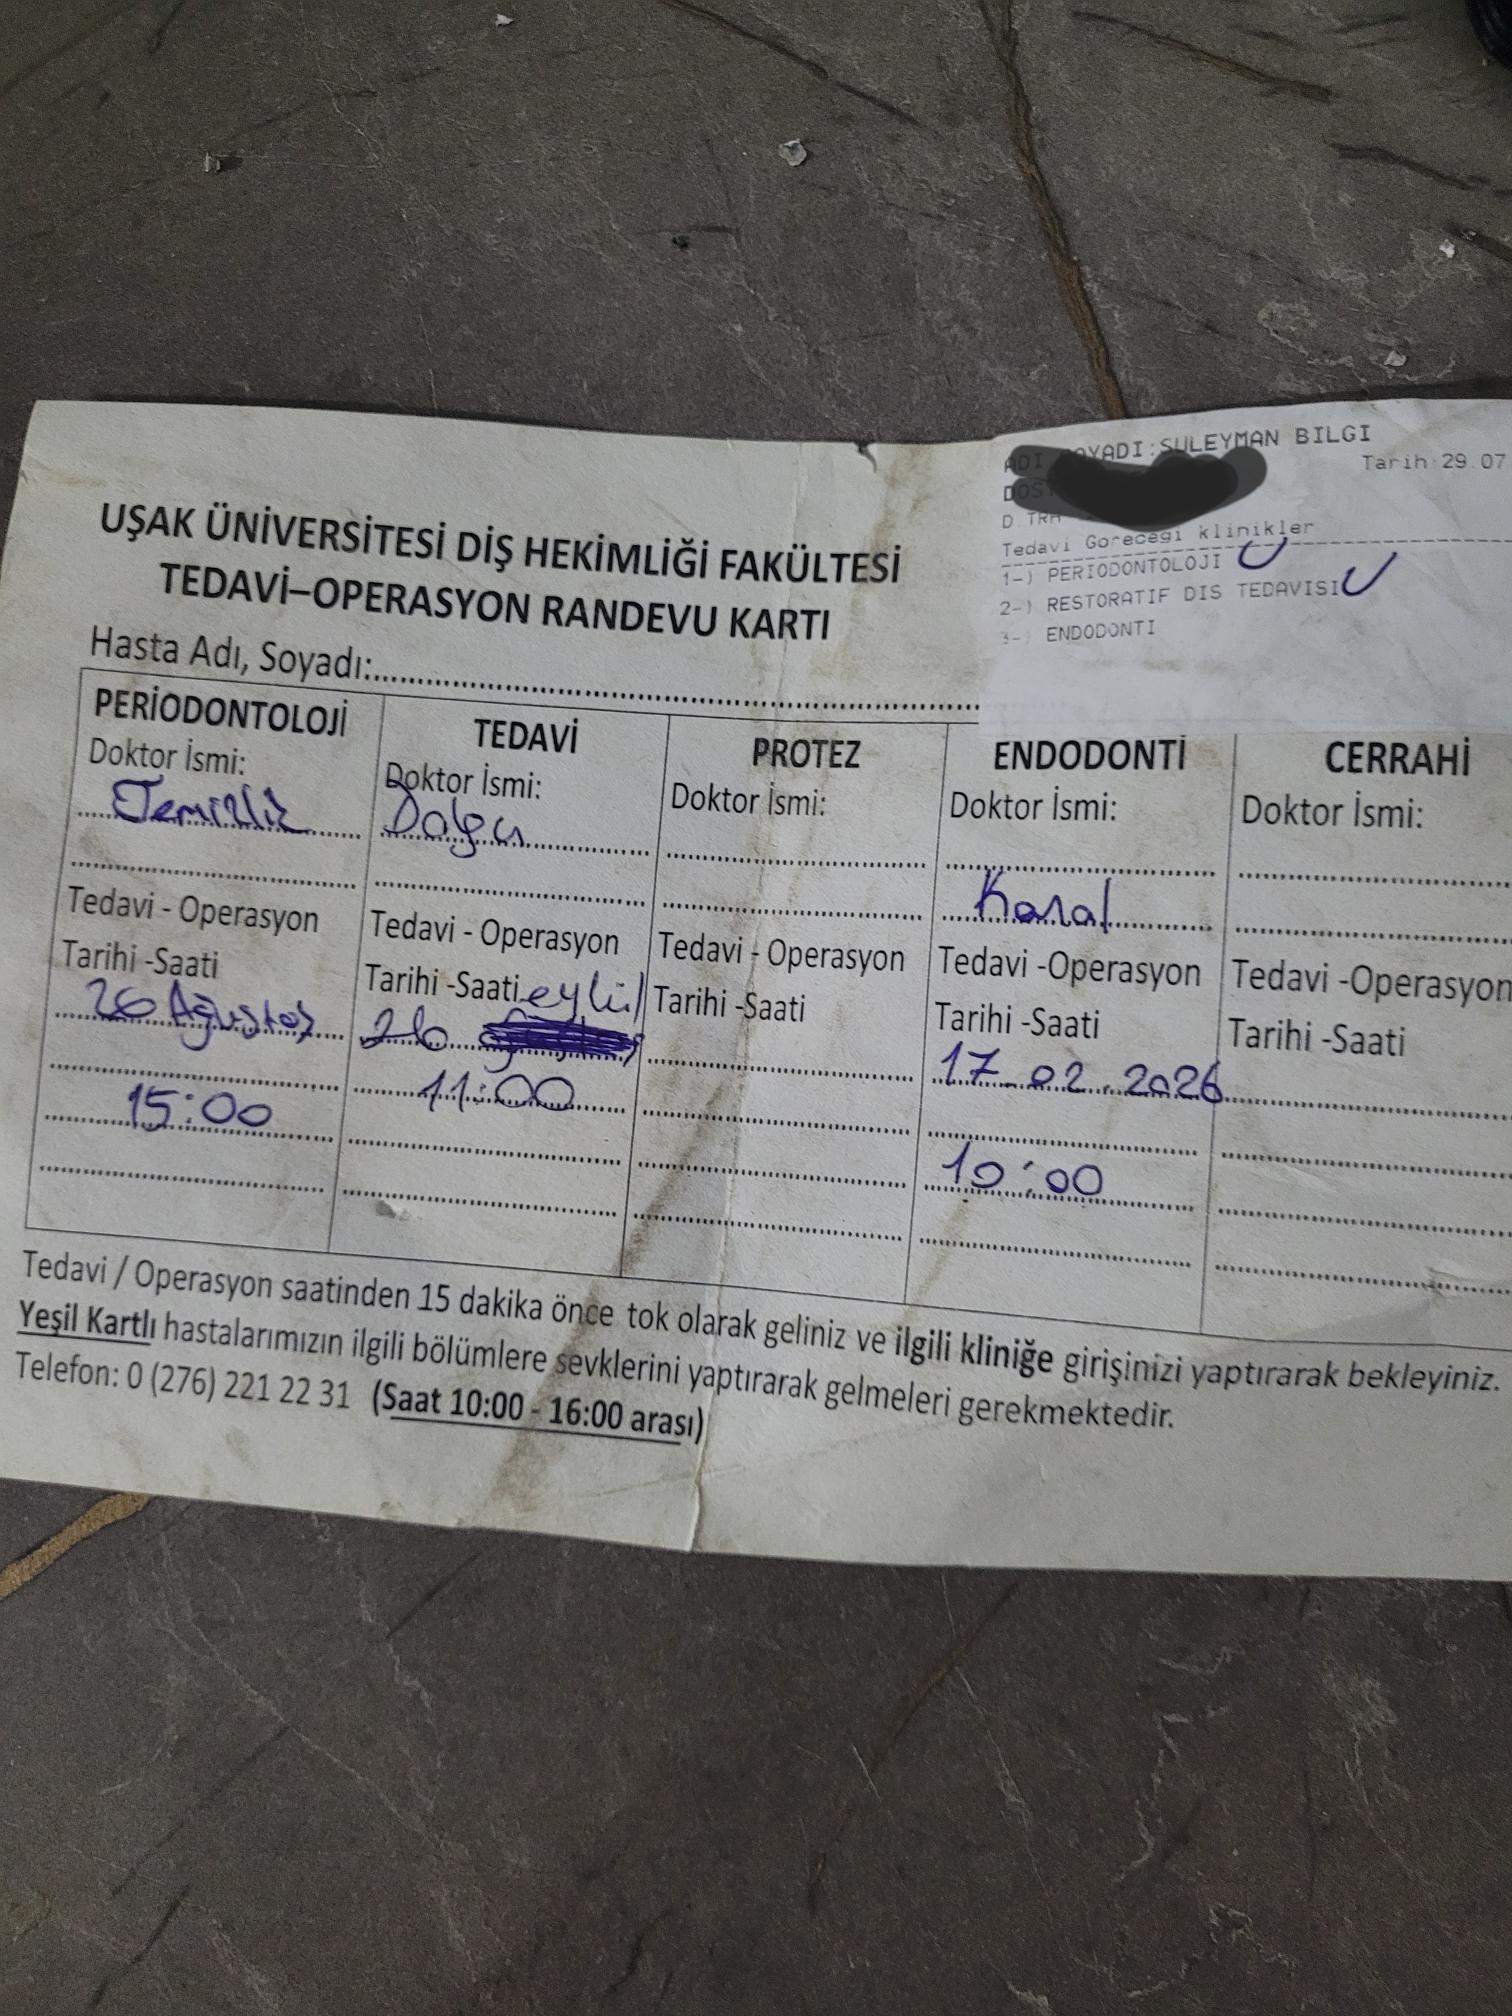 ADI SOYADI:SULEYMAN BILGI
Tarih:29.07
DOS
D TRH
Tedavi Gorecegi klinikler
1-) PERIODONTOLOJI
2-) RESTORATIF DIS TEDAVISI
3-) ENDODONTI
UŞAK ÜNİVERSİTESİ DİŞ HEKİMLİĞİ FAKÜLTESİ
TEDAVİ–OPERASYON RANDEVU KARTI
Hasta Adı, Soyadı:
PERİODONTOLOJİ
Doktor İsmi:
Temizlik
Tedavi - Operasyon
Tarihi -Saati
26 Ağustos
15:00
TEDAVİ
Doktor İsmi:
Dolgu
Tedavi - Operasyon
Tarihi -Saati eylül
26
11:00
PROTEZ
Doktor İsmi:
Tedavi - Operasyon
Tarihi -Saati
ENDODONTİ
Doktor İsmi:
Kanal
Tedavi -Operasyon
Tarihi -Saati
17.02.2026
10:00
CERRAHİ
Doktor İsmi:
Tedavi -Operasyon
Tarihi -Saati
Tedavi / Operasyon saatinden 15 dakika önce tok olarak geliniz ve ilgili kliniğe girişinizi yaptırarak bekleyiniz.
Yeşil Kartlı hastalarımızın ilgili bölümlere sevklerini yaptırarak gelmeleri gerekmektedir.
Telefon: 0 (276) 221 22 31 (Saat 10:00 - 16:00 arası)